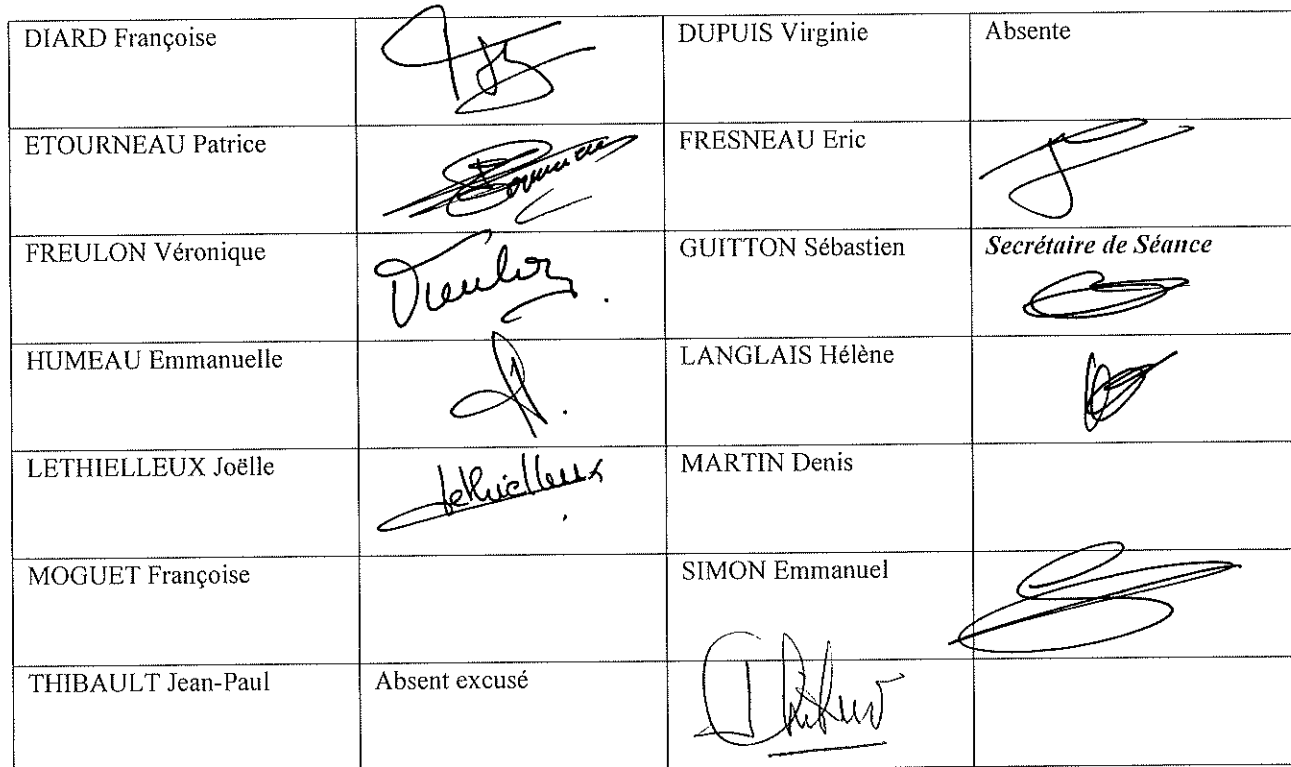 DIARD Françoise DUPUIS Virginie Absente
ETOURNEAU Patrice FRESNEAU Eric
FREULON Véronique GUITTON Sébastien Secrétaire de Séance
HUMEAU Emmanuelle LANGLAIS Hélène
LETHIELLEUX Joëlle Lethielleux MARTIN Denis
MOGUET Françoise SIMON Emmanuel
THIBAULT Jean-Paul Absent excusé